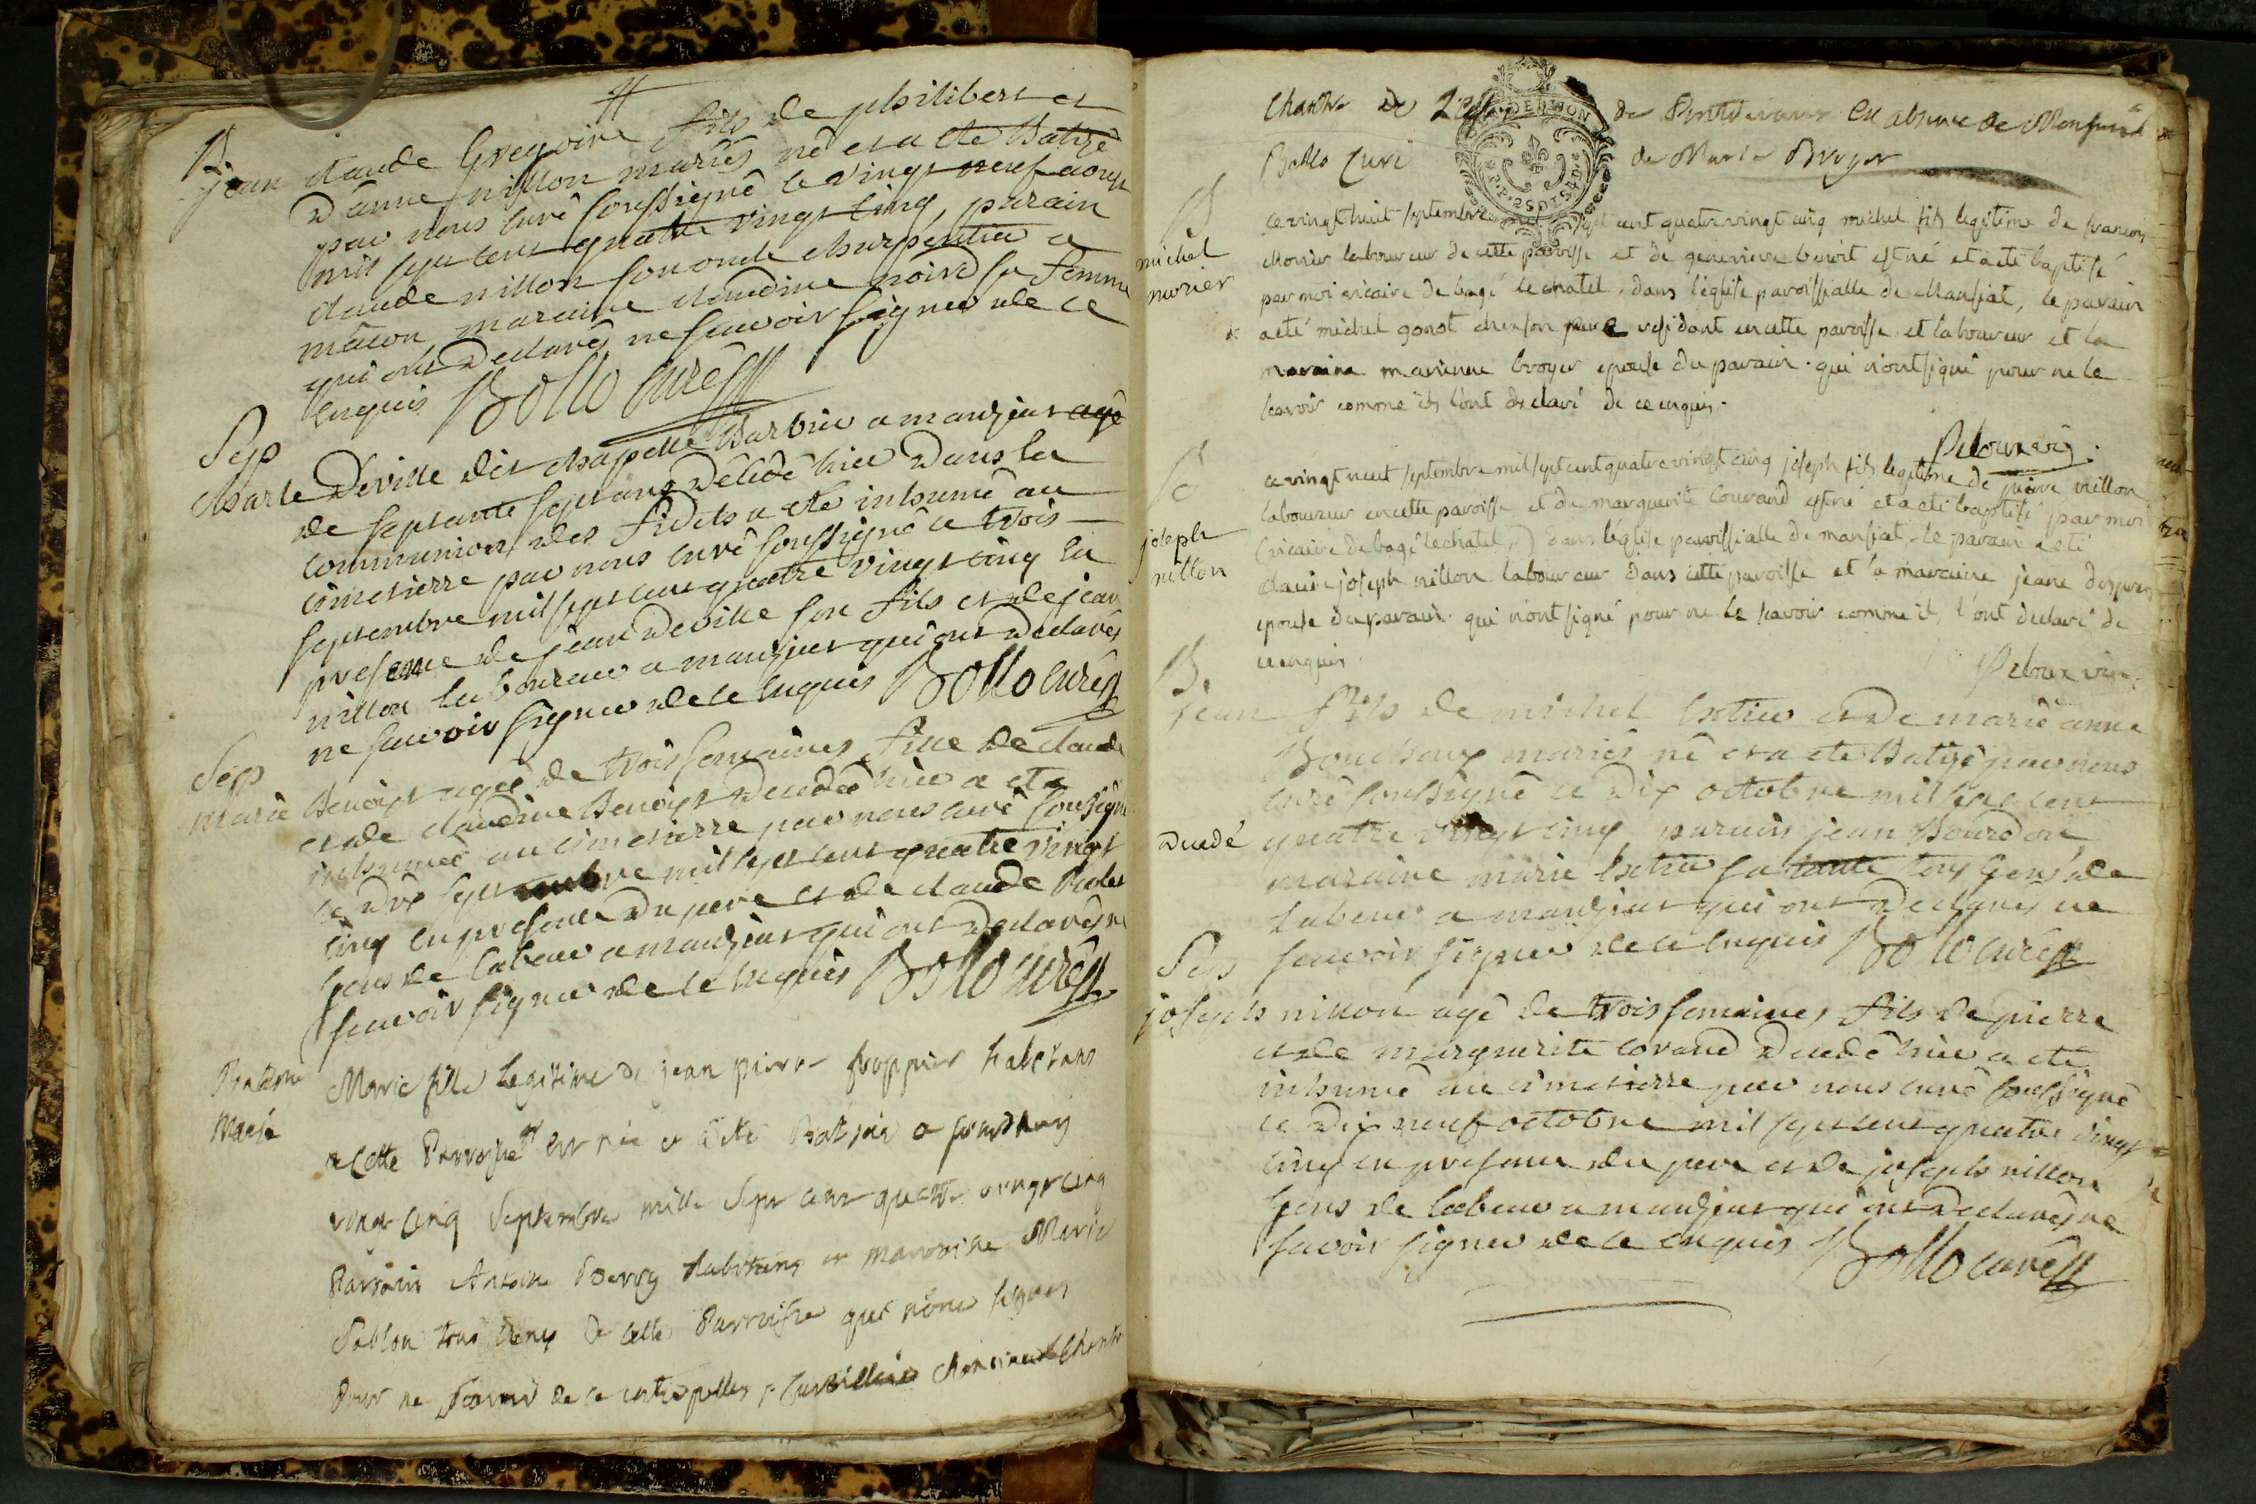 B
jean claude Gregoire fils de philibert et
d'anne nillon mariés né et a eté Batizé
par nous curé soussigné le vingt neuf aoust
mil sept cent quatre vingt cinq, parain
claude nillon son oncle charpentier a
mâcon maraine claudine noird sa femme
qui ont declarés ne savoir signer de ce
enquis Bollo curé
Sep
charle Deville dit chapelle Barbier a manziat agé
de septante sept ans décédé hier dans la
communion des fidels a eté inhumé au
cimetierre par nous curé soussigné ce trois
septembre mil sept cent quatre vingt cinq en
presence de jean Deville son fils et de jean
nillon laboureur a manziat qui ont declarés
ne savoir signer de ce enquis Bollo curé
Sep
marie Benoist agée de trois semaines fille de claude
et de claudine Benoist decedée hier a eté
inhumée au cimetierre par nous curé soussigné
ce dix septembre mil sept cent quatre vingt
cinq en presence du pere et de claude
gens de labeur a manziat qui ont declarés ne
savoir signer de ce enquis Bollo curé
Bateme
Marie
Marie fille legitime de jean pierre habitans
a Cette Parroisse est née et a été Batisée
vingt cinq Septembre mille Sept cent quatre vingt cinq
Parrain Antoine habitans et marraine Marie
tous deux de Cette Parroisse qui n'ont signer
Pour ne Savoir de ce interpelles
Chantre de de en absence de Monsieur
Bollo Curé de
B
michel
morier
ce vingt huit septembre mil sept cent quatre vingt cinq michel fils legitime de francois
morier laboureur de cette paroisse et de genevieve benoit est né et a eté baptisé
par moi vicaire de bagé le chatel, dans l'église paroissialle de Mansiat, le parain
a eté michel gonot chez son pere residant en cette paroisse et laboureur et la
maraine marienne broyer epouse du parain. qui n'ont signé pour ne le
scavoir comme ils l'ont declaré de ce enquis.
Peloux vic.
B
joseph
nillon
ce vingt neuf septembre mil sept cent quatre vingt cinq joseph fils legitime de pierre nillon
laboureur en cette paroisse et de marguerite Couvand est né et a eté baptisé par moi
(vicaire de bagé le chatel,) dans l'église paroissialle de mansiat, le parain a eté
claude joseph nillon laboureur dans cette paroisse et la maraine jeane
epouse du parain. qui n'ont signé pour ne le scavoir comme ils l'ont declaré de
ce enquis.
Peloux vic.
B.
jean fils de michel et de marie anne
mariés né et a eté Batizé par nous
curé soussigné ce dix octobre mil sept cent
decedé quatre vingt cinq parain jean Bourdon
maraine marie sa tante tous gens de
labeur a manziat qui ont declarés ne
savoir signer de ce enquis Bollo curé
Sep
joseph nillon agé de trois semaines fils de pierre
et de marguerite Covand decedé hier a eté
inhumé au cimetierre par nous curé soussigné
ce dix neuf octobre mil sept cent quatre vingt
cinq en presence du pere et de joseph nillon
gens de labeur a manziat qui ont declarés ne
savoir signer de ce enquis Bollo curé